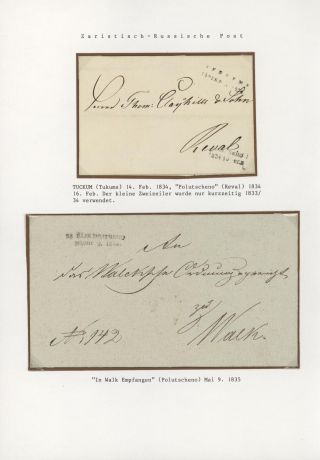 Zaristisch-Russische Post
Herrn Thom: Clayhills & Sohn
Reval
TUCKUM (Tukums) 14. Feb. 1834, "Polutscheno" (Reval) 1834
16. Feb. Der kleine Zweizeiler wurde nur kurzzeitig 1833/
34 verwendet.
An
das Walcksche Ordnungsgericht
zu
Walk.
No 142
"In Walk Empfangen" (Polutscheno) Mai 9. 1835